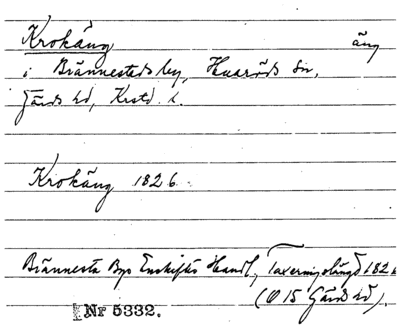 Krokäng äng
i Brännestads by, Huaröds sn,
Gärds hd, Krstd. l.
Krokäng 1826
Brännesta Bys Enskiftes Handl, Taxeringslängd 1826
(O 15 Gärds hd).
Nr 5332.